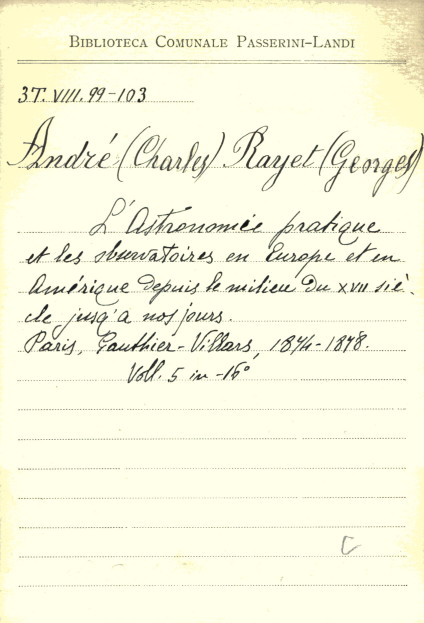 BIBLIOTECA COMUNALE PASSERINI-LANDI
3T. VIII. 99-103
André (Charles) Rayet (Georges)
L'Astronomie pratique
et les observatoires en Europe et en
Amérique depuis le milieu du XVII siè-
cle jusq'a nos jours.
Paris, Gauthier-Villars, 1874-1878.
Voll. 5 in-16°
C